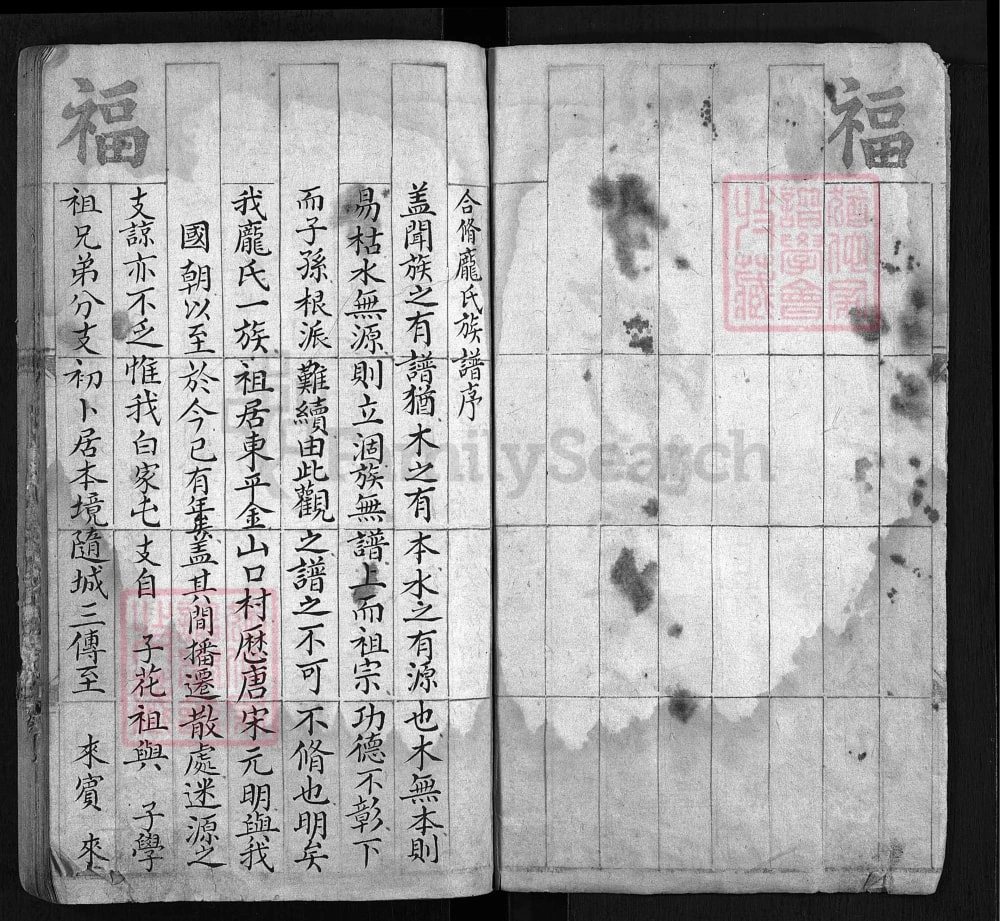 福
合脩龐氏族譜序
盖聞族之有譜猶木之有本水之有源也木無本則
易枯水無源則立涸族無譜上而祖宗功德不彰下
而子孫根派難續由此觀之譜之不可不脩也明矣
我龐氏一族祖居東平金山口村歷唐宋元明與我
國朝以至於今已有年矣盖其間播遷散處迷源之
支諒亦不乏惟我白家屯支自 子花祖與 子學
祖兄弟分支初卜居本境隨城三傳至 來賓 來
福
FamilySearch